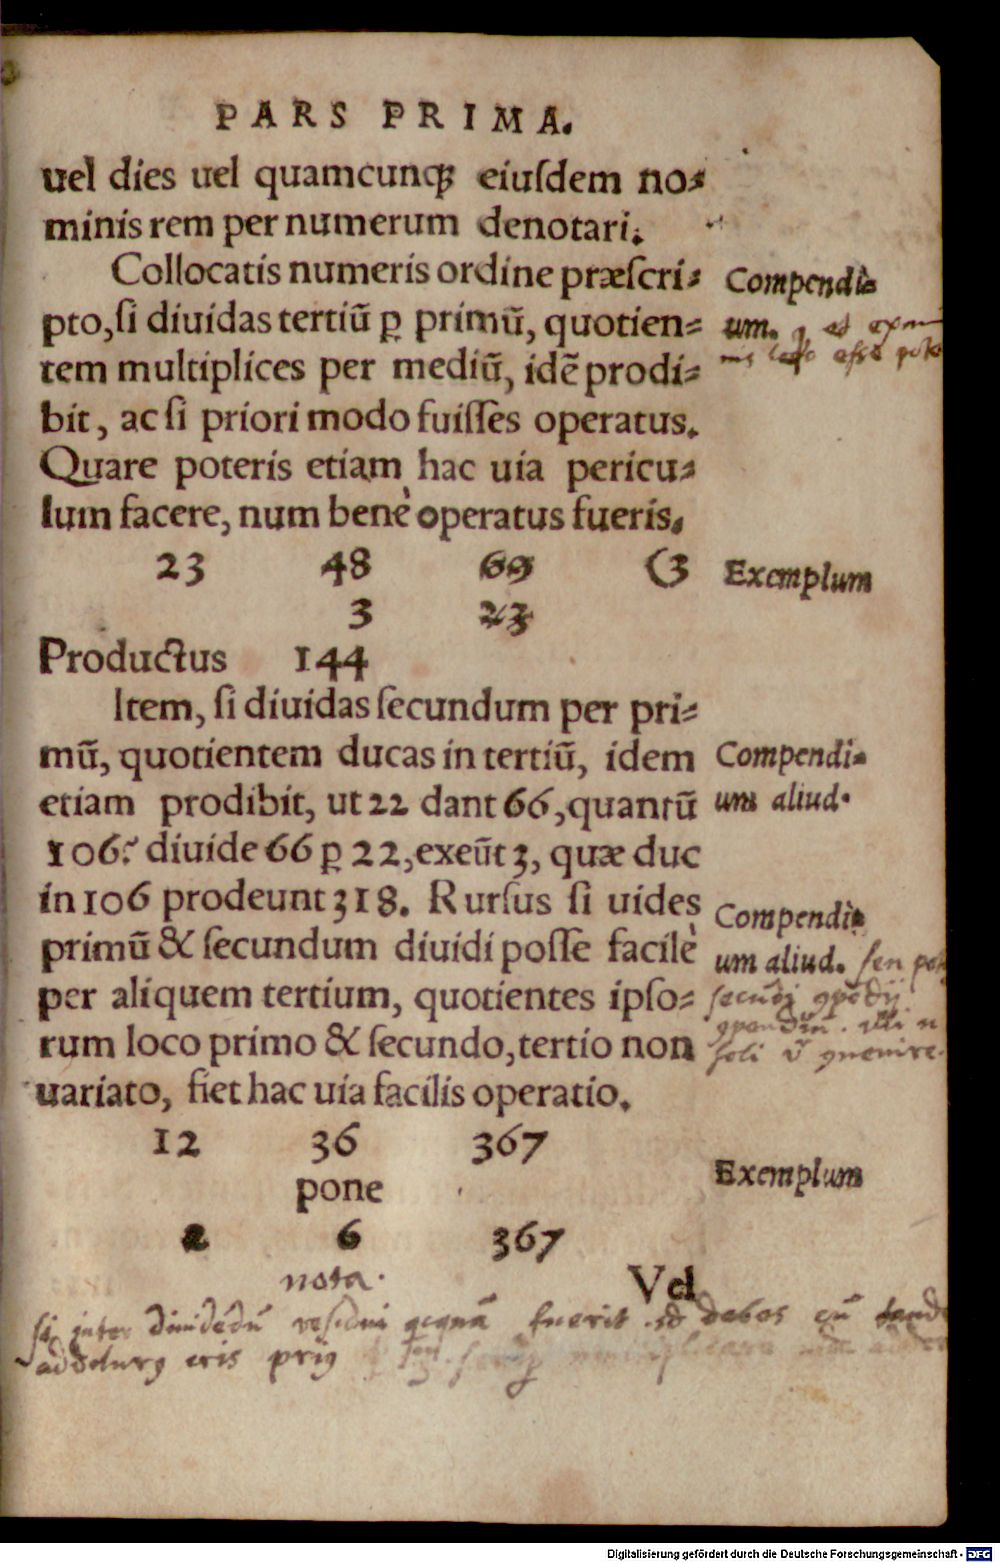 PARS PRIMA.
uel dies uel quamcunqꝫ eiuſdem no⸗
minis rem per numerum denotari.
Collocatis numeris ordine præſcri⸗
pto, ſi diuidas tertiũ ꝑ primũ, quotien⸗
tem multiplices per mediũ, idẽ prodi⸗
bit, ac ſi priori modo fuiſſes operatus.
Quare poteris etiam hac uia pericu⸗
lum facere, num benè operatus fueris.
Compendi⸗
um.
23 48 69 (3
3 23
Exemplum
Productus 144
Item, ſi diuidas ſecundum per pri⸗
mũ, quotientem ducas in tertiũ, idem
etiam prodibit, ut 22 dant 66, quantũ
106? diuide 66 ꝑ 22, exeũt 3, quæ duc
in 106 prodeunt 318. Rurſus ſi uides
primũ & ſecundum diuidi poſſe facilè
per aliquem tertium, quotientes ipſo⸗
rum loco primo & ſecundo, tertio non
uariato, fiet hac uia facilis operatio.
Compendi⸗
um aliud.
Compendi⸗
um aliud.
12 36 367
pone
2 6 367
Exemplum
Vel
nota.